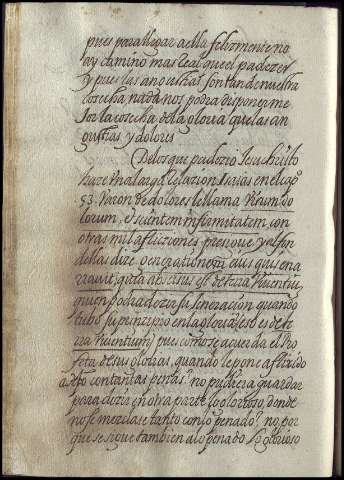 pues para llegar a ella felizmente no
ay camino mas leal que el padezer
y pues las angustias son tan de nuestra
cosecha nada nos podra disponer me
Jor la cosecha de la gloria que las an
gustias y dolores
De los que padezio Jesuchristo
haze una larga relazion Isaias en el cap°
53. Varon de dolores le llama Virum do
lorum, et scientem infirmitatem, con
otras mil aflicciones, pres que y al fin
de ellas dize generationem eius quis ena
rravit, quia abscisus est de terra viventiu,
quien podra dezir su Generazion quando
tubo su principio en la gloria, esto es de te
rra viventium, pues como se acuerda el Pro
feta de sus glorias, quando le pone aflixido
con tantas penas? no pudiera guardar
para dezir en otra parte lo glorioso, donde
no se mezclase tanto con lo penado? no, por
que se sigue tambien a lo penado lo glorioso